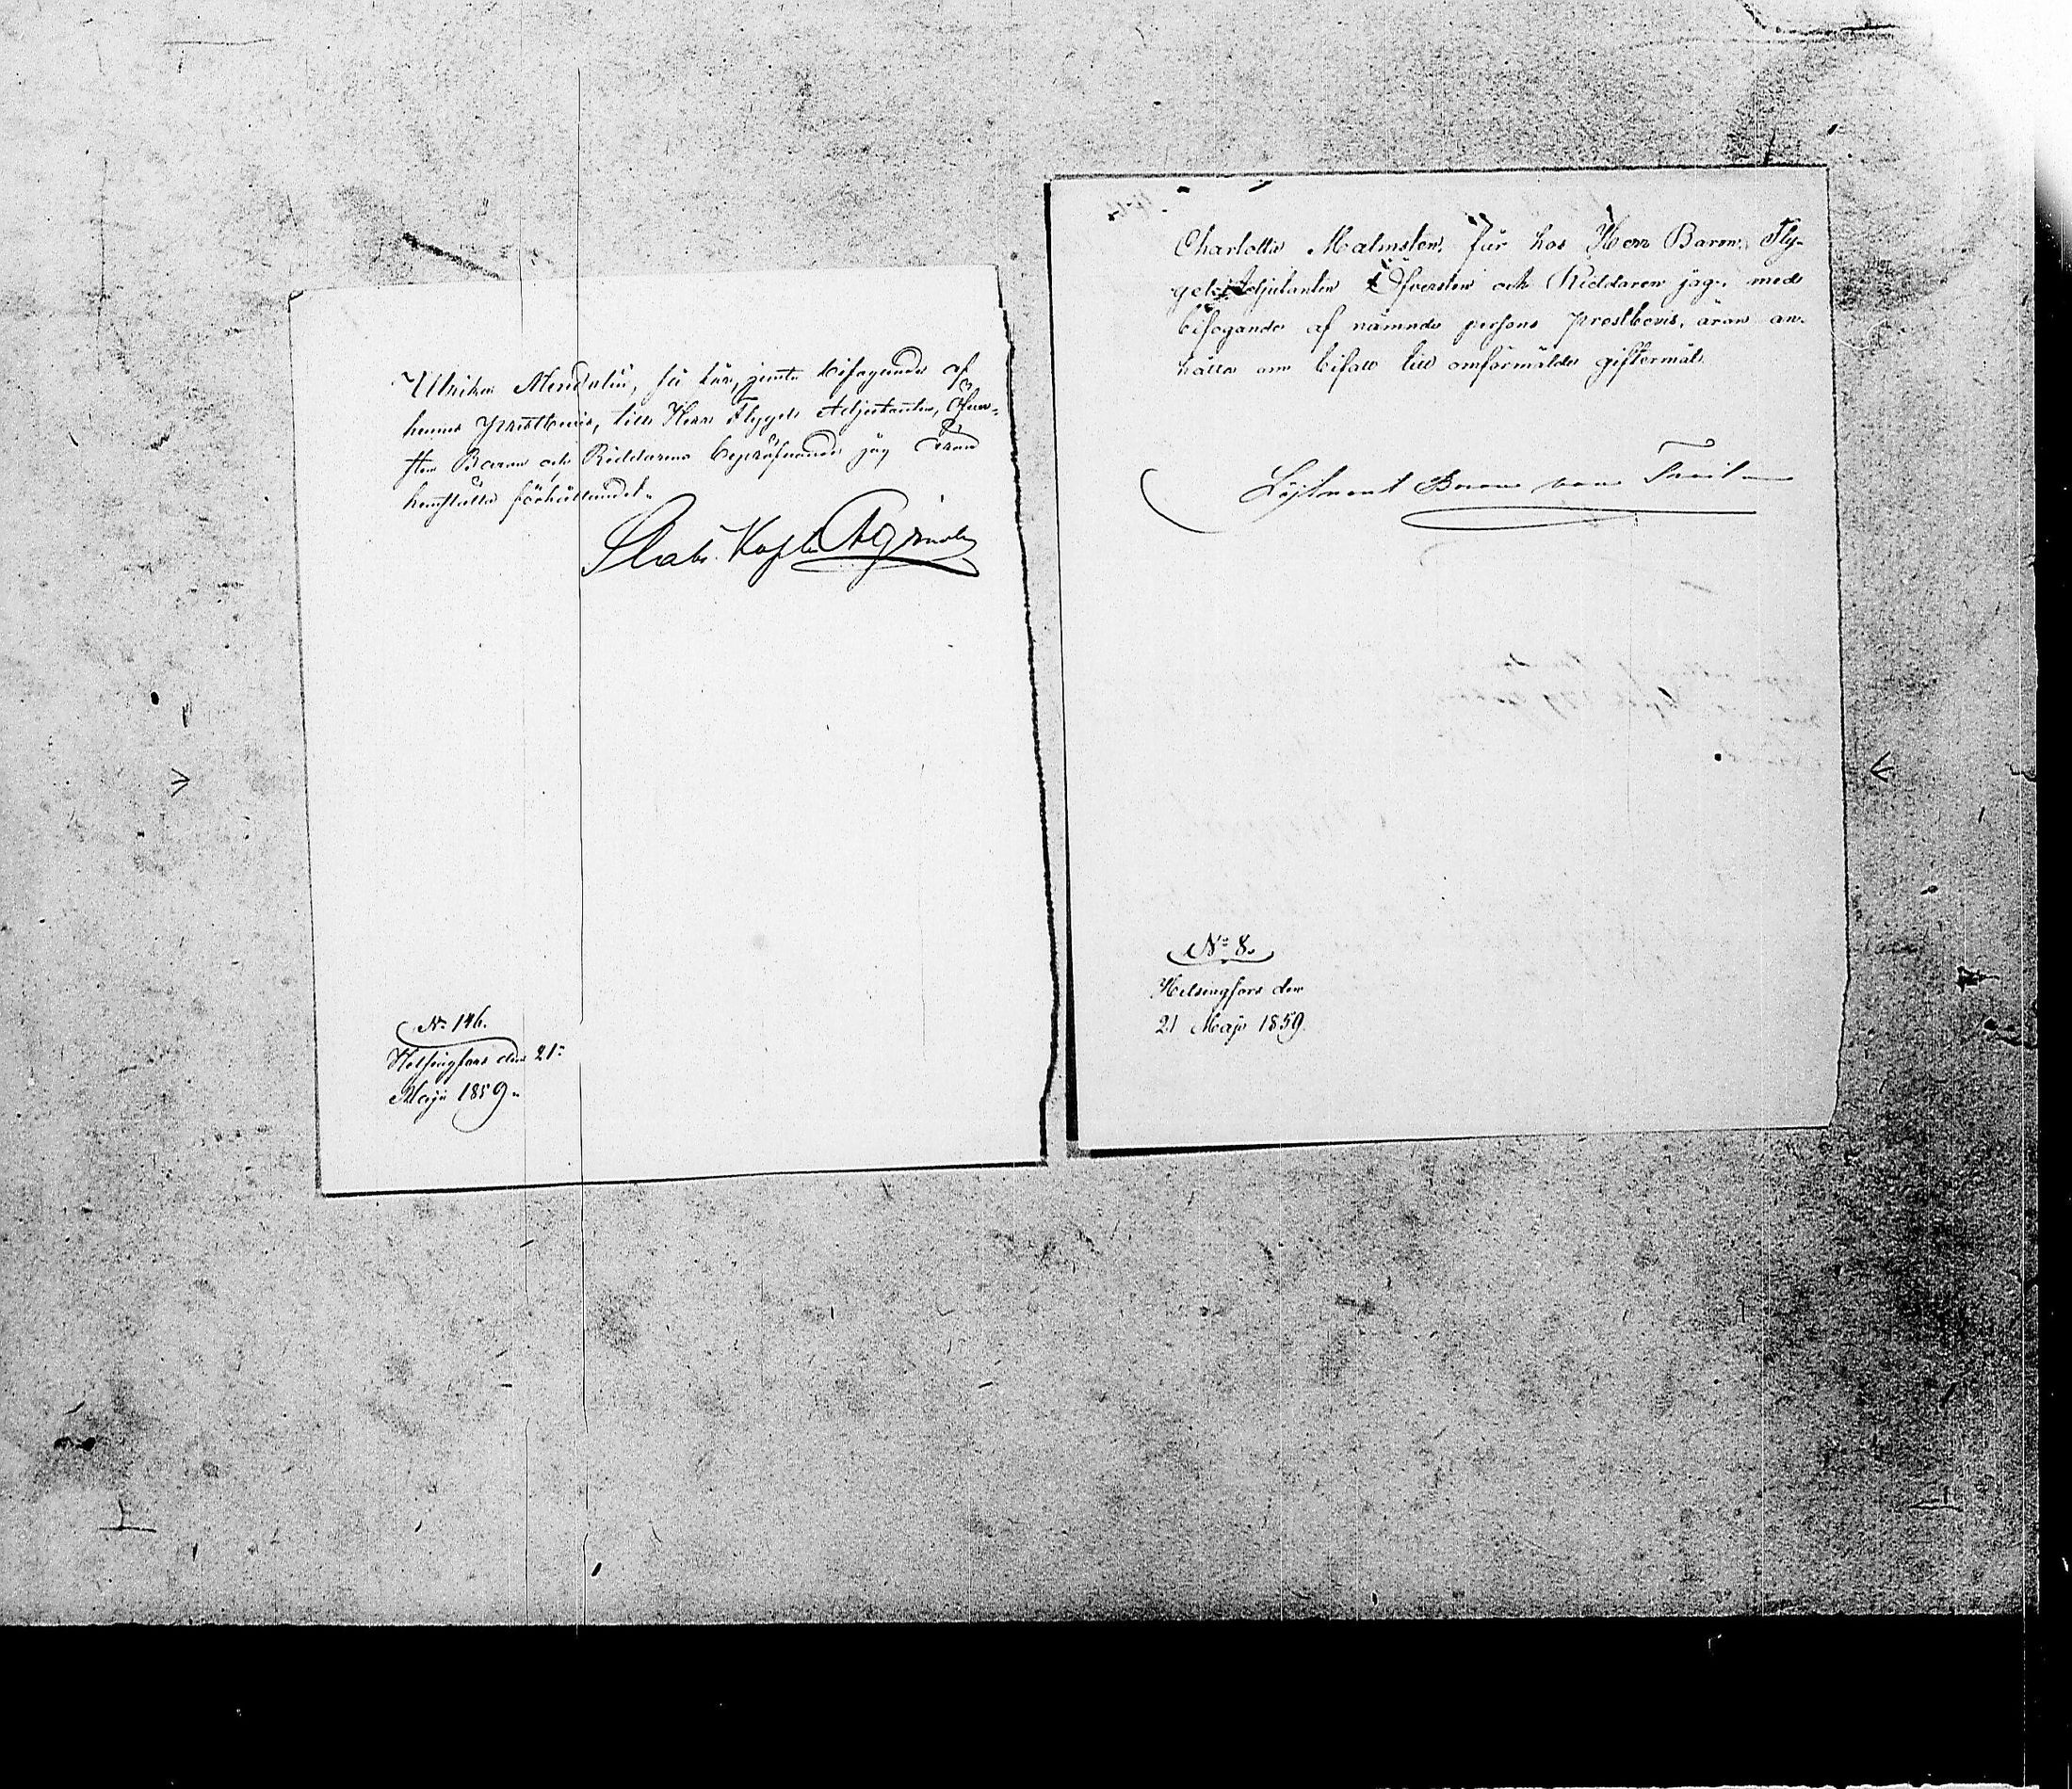 Ulrika Mendelin, få här, jemte bifogande af
hennes prestbevis, till Herr Flygel Adjutanten, Öfver-
sten Baron och Riddarens bepröfvande jag äran
hemställa förhållandet.
Stabs Kapten
No 146.
Helsingfors den 21:
Maji 1859.
Charlotta Malmsten, får hos Herr Baron, Fly-
gel Adjutanten Öfversten och Riddaren jag, med
bifogande af nämnde persons prestbevis, äran an-
hålla om bifall till omförmälde giftermål.
Löjtnant Baron von Troil
No 8.
Helsingfors den
21 Maji 1859.